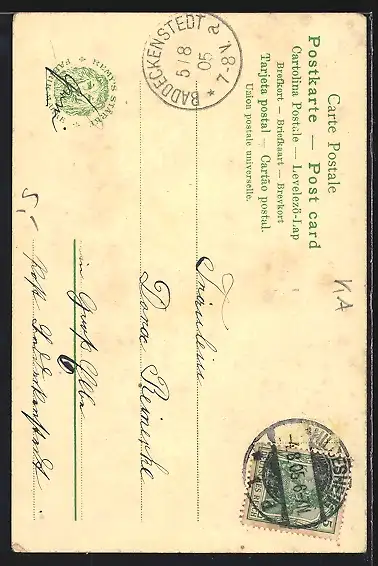 Carte Postale
Postkarte — Post card
Cartolina Postale — Levelező-Lap
Brefkort — Briefkaart — Brevkort
Tarjeta postal — Cartão postal.
Union postale universelle.
BADDECKENSTEDT
5/8
05
7-8V
Fräulein
Dora Reinecke
in Groß Elbe
Post Baddeckenstedt
5,-
KA